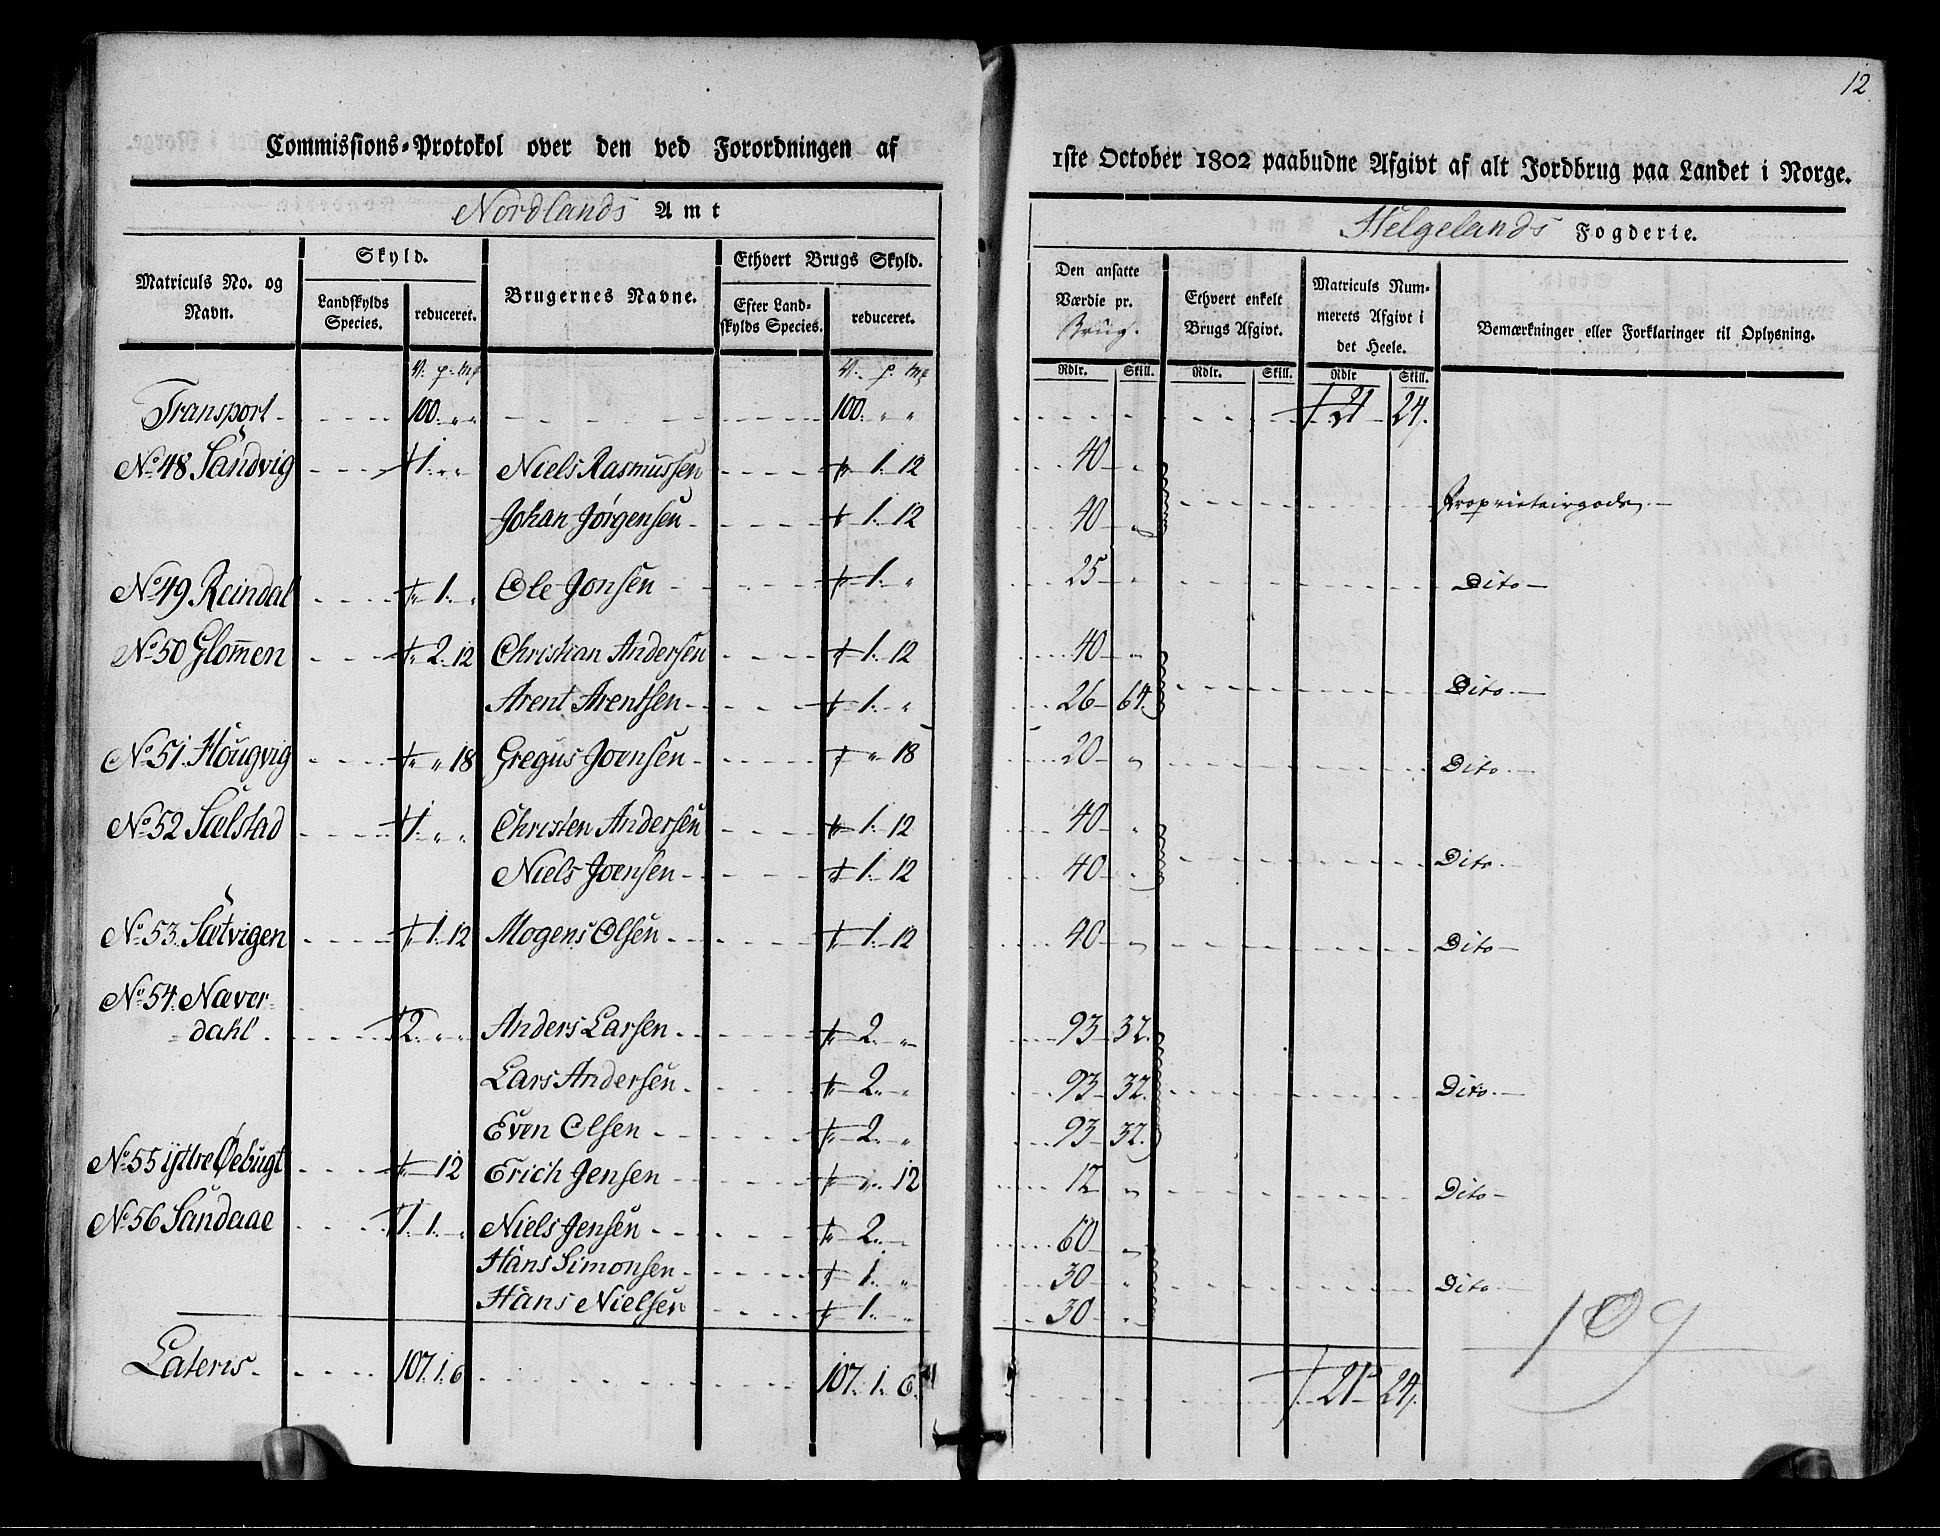 12
Commissions-Protokol over den ved Forordningen af
1ste October 1802 paabudne Afgivt af alt Jordbrug paa Landet i Norge.
Nordlands Amt
Helgelands Fogderie.
Matriculs No. og Navn.
Skyld.
Landskylds Species.
reduceret.
Brugernes Navne.
Ethvert Brugs Skyld.
Efter Landskylds Species.
reduceret.
Den ansatte Værdie pr. Brug.
Ethvert enkelt Brugs Afgivt.
Matriculs Nummerets Afgivt i det Heele.
Bemærkninger eller Forklaringer til Oplysning.
V. p. mk V. p. mk Rdlr. Skill. Rdlr. Skill. Rdlr Skill.
Transport - 100. „ „ 100. „ „ 21 24.
No 48 Sandvig 1. „ „ Niels Rasmussen 1. 12 40 „
Johan Jørgensen 1. 12 40 „ Proprietairgods
No 49 Reindal 1. „ Ole Jonsen 1. „ 25 „ Dito
No 50 Glommen 2. 12 Christian Andersen 1. 12 40 „
Arent Arentsen 1. „ 26 64. Dito
No 51. Hougvig „ 18 Gregus Joensen „ 18 20 „ Dito
No 52 Sælstad 1 „ „ Christen Andersen 1. 12 40 „
Niels Joensen 1. 12 40 „ Dito
No 53. Sætvigen 1. 12 Mogens Olsen 1. 12 40 „ Dito
No 54. Næver-
dahl. 2. „ „ Anders Larsen 2. „ 93 32.
Lars Andersen 2. „ 93 32. Dito
Even Olsen 2. „ 93 32.
No 55 ÿttre Øebugt 12 Erich Jensen „ 12 12 „ Dito
No 56 Sandaae 1. 1. „ Niels Jensen 2. „ 60 „
Hans Simonsen 1. „ 30 „ Dito
Hans Nielsen 1. „ 30 „
Lateris. 107. 1. 6 107. 1. 6. 21 24.
109